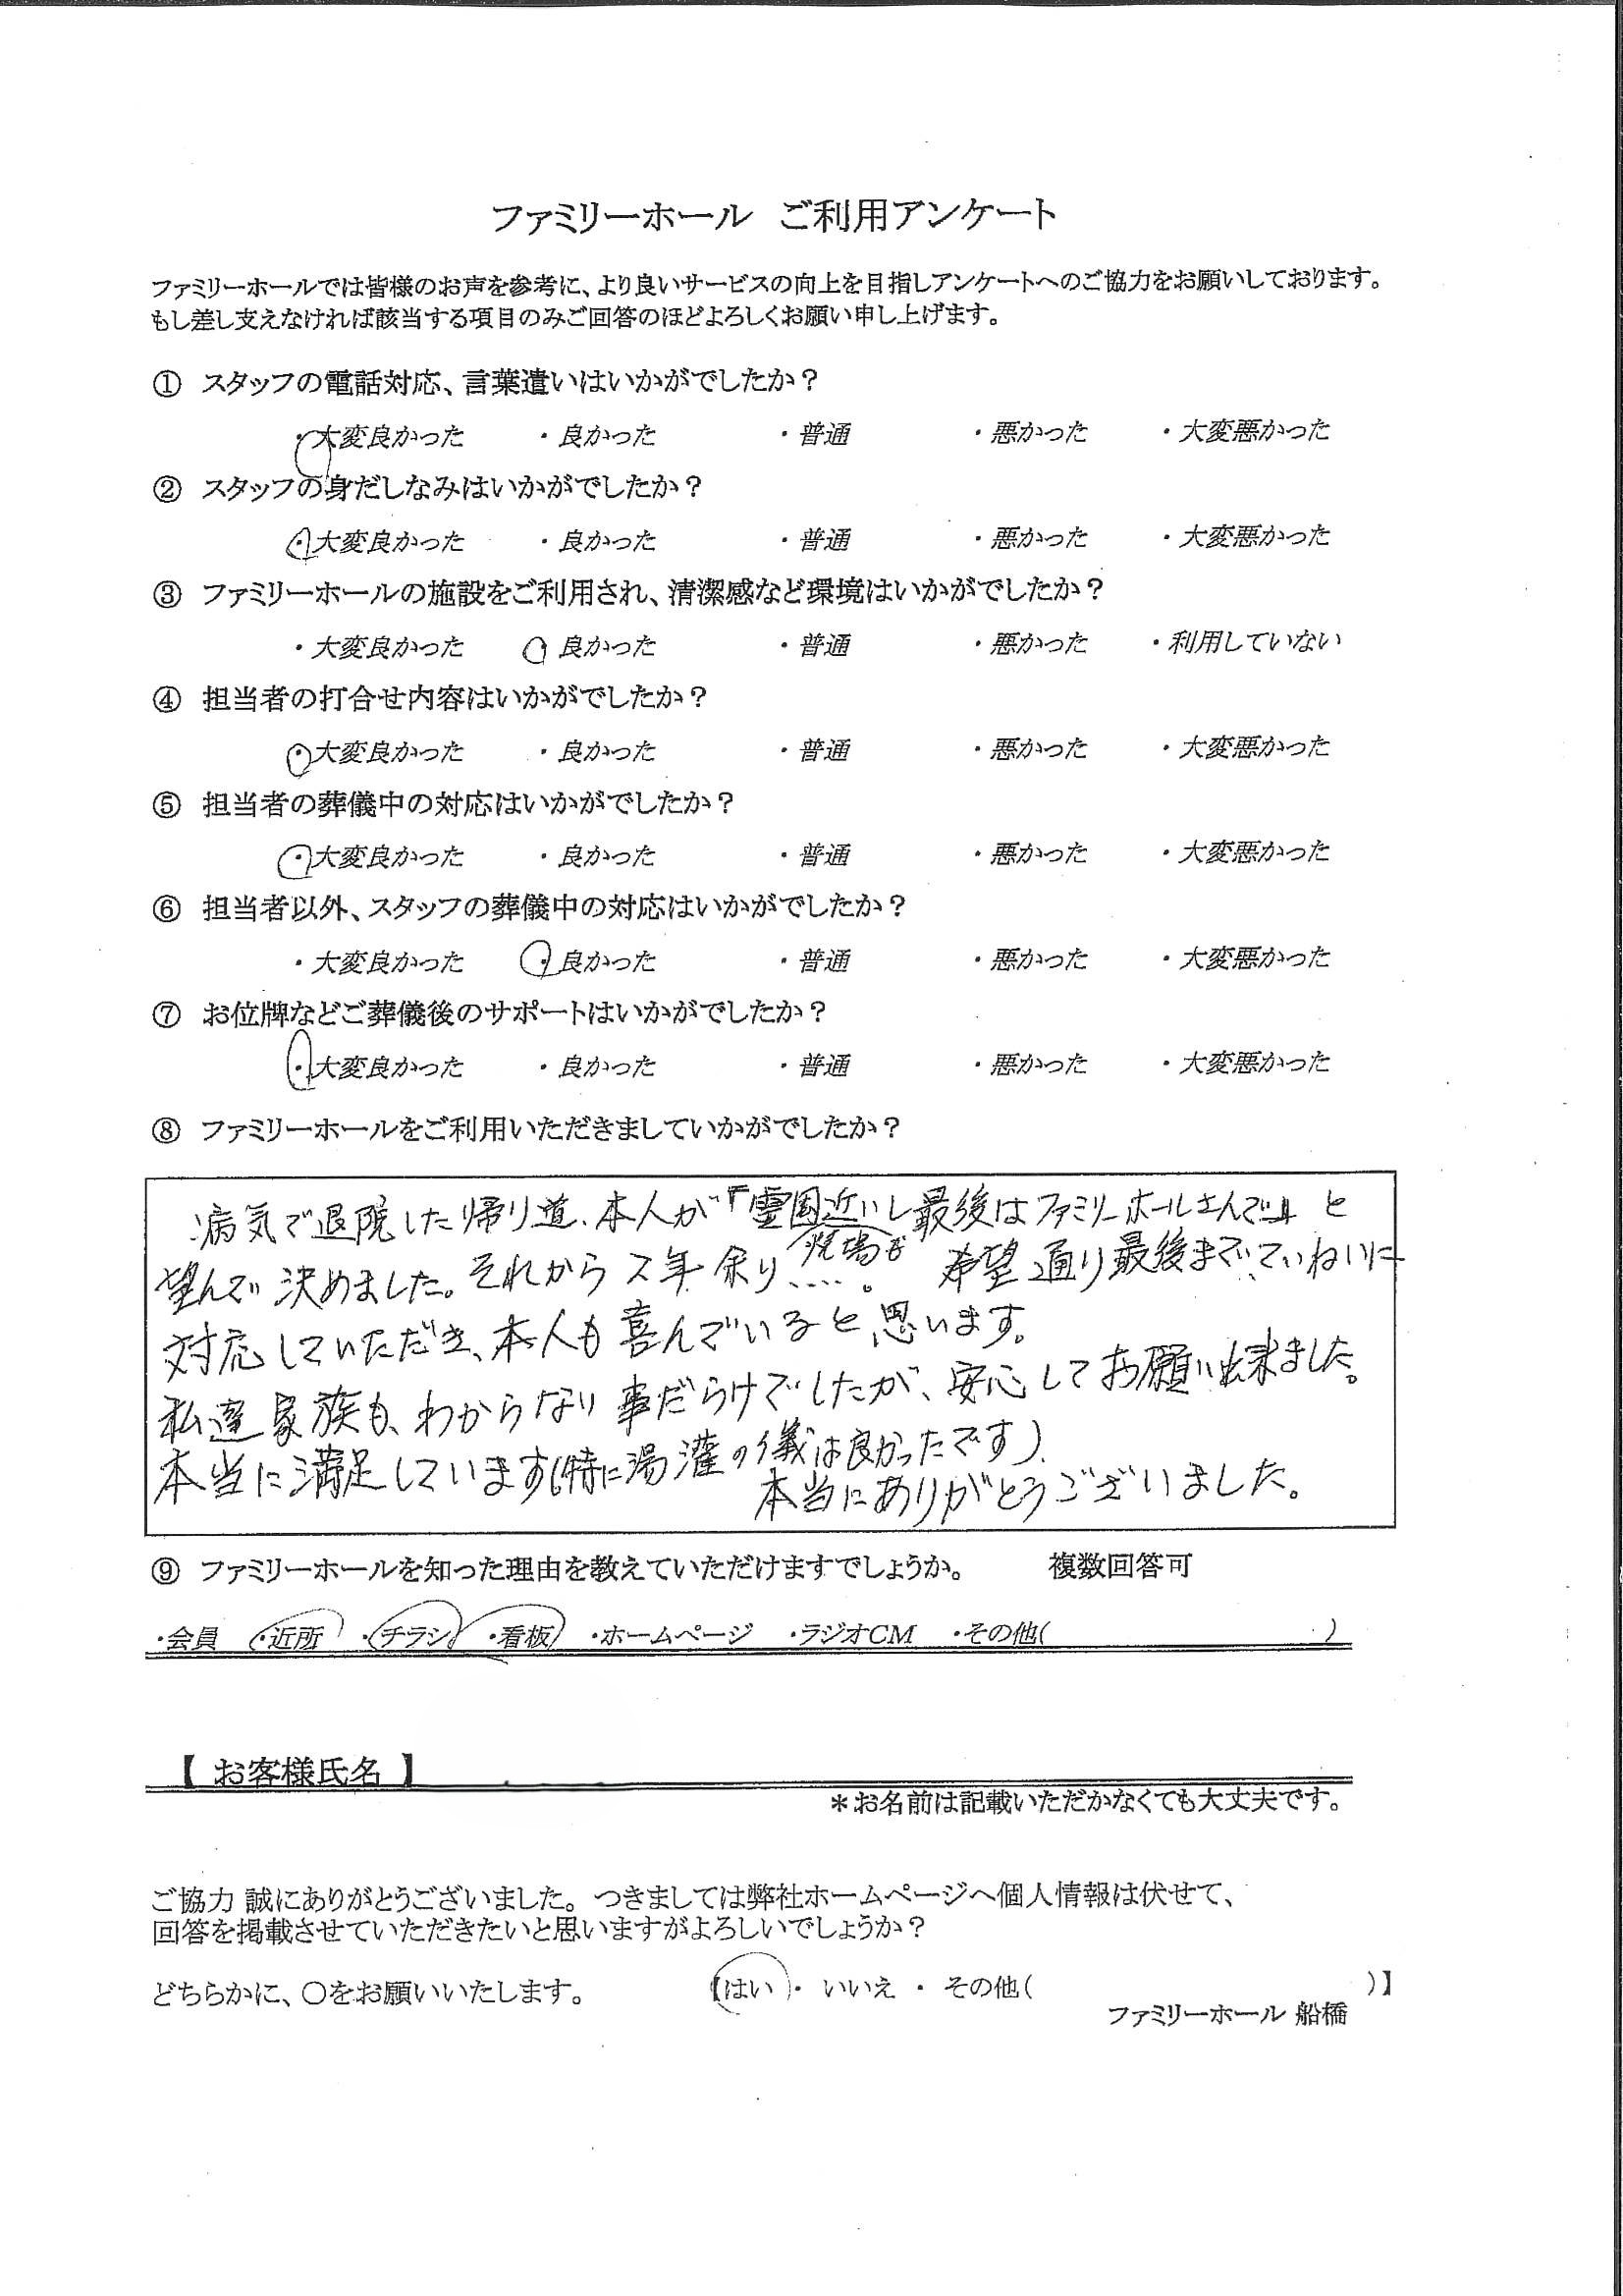 ファミリーホール ご利用アンケート
ファミリーホールでは皆様のお声を参考に、より良いサービスの向上を目指しアンケートへのご協力をお願いしております。
もし差し支えなければ該当する項目のみご回答のほどよろしくお願い申し上げます。
① スタッフの電話対応、言葉遣いはいかがでしたか？
・大変良かった ・良かった ・普通 ・悪かった ・大変悪かった
② スタッフの身だしなみはいかがでしたか？
・大変良かった ・良かった ・普通 ・悪かった ・大変悪かった
③ ファミリーホールの施設をご利用され、清潔感など環境はいかがでしたか？
・大変良かった ・良かった ・普通 ・悪かった ・利用していない
④ 担当者の打合せ内容はいかがでしたか？
・大変良かった ・良かった ・普通 ・悪かった ・大変悪かった
⑤ 担当者の葬儀中の対応はいかがでしたか？
・大変良かった ・良かった ・普通 ・悪かった ・大変悪かった
⑥ 担当者以外、スタッフの葬儀中の対応はいかがでしたか？
・大変良かった ・良かった ・普通 ・悪かった ・大変悪かった
⑦ お位牌などご葬儀後のサポートはいかがでしたか？
・大変良かった ・良かった ・普通 ・悪かった ・大変悪かった
⑧ ファミリーホールをご利用いただきましていかがでしたか？
病気で退院した帰り道、本人が『霊園近いし最後はファミリーホールさんで』と
焼場も
望んで決めました。それから2年余り、…。 希望通り最後までていねいに
対応していただき、本人も喜んでいると思います。
私達家族も、わからない事だらけでしたが、安心してお願い出来ました。
本当に満足しています(特に湯灌の儀は良かったです)
本当にありがとうございました。
⑨ ファミリーホールを知った理由を教えていただけますでしょうか。 複数回答可
・会員 ・近所 ・チラシ ・看板 ・ホームページ ・ラジオCM ・その他( )
【 お客様氏名 】
＊お名前は記載いただかなくても大丈夫です。
ご協力 誠にありがとうございました。つきましては弊社ホームページへ個人情報は伏せて、
回答を掲載させていただきたいと思いますがよろしいでしょうか？
どちらかに、〇をお願いいたします。 【はい ・ いいえ ・ その他( )】
ファミリーホール 船橋